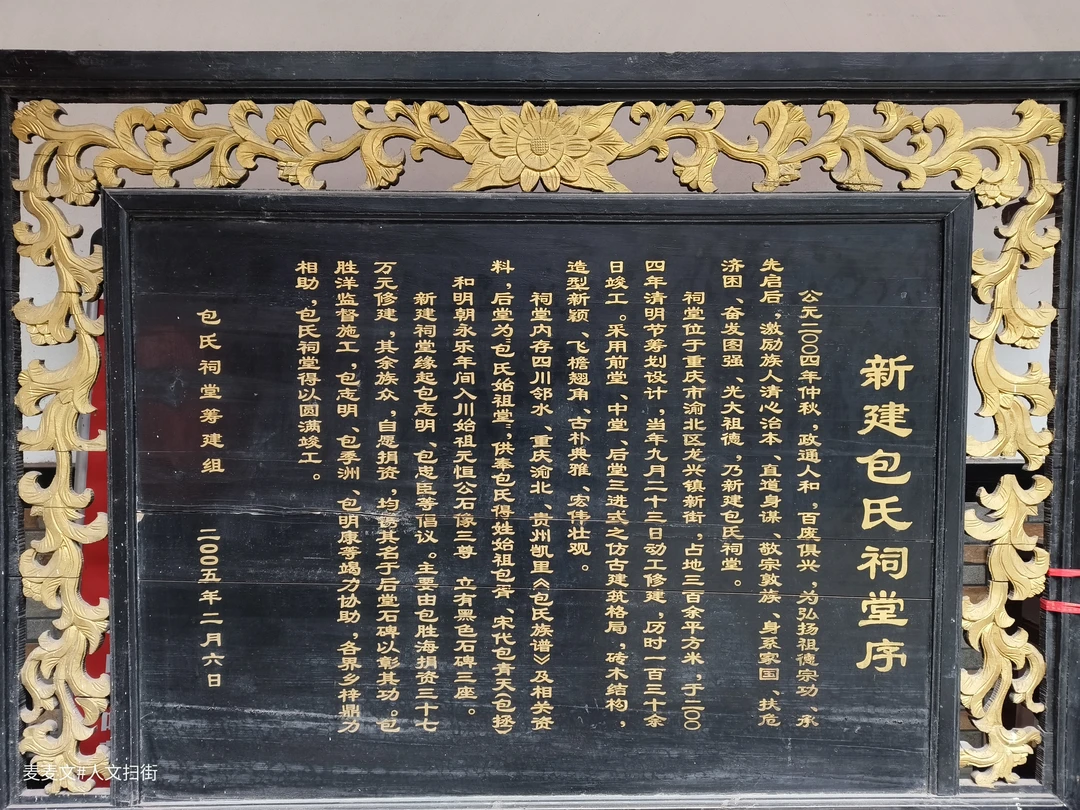 新建包氏祠堂序
公元二00四年仲秋，政通人和，百废俱兴，为弘扬祖德宗功、承
先启后，激励族人清心治本、直道身谋、敬宗敦族、身系家国、扶危
济困、奋发图强、光大祖德，乃新建包氏祠堂。
祠堂位于重庆市渝北区龙兴镇新街，占地三百余平方米，于二00
四年清明节筹划设计，当年九月二十三日动工修建，历时一百三十余
日竣工。采用前堂、中堂、后堂三进式之仿古建筑格局，砖木结构，
造型新颖、飞檐翘角、古朴典雅、宏伟壮观。
祠堂内存四川邻水、重庆渝北、贵州凯里《包氏族谱》及相关资
料，后堂为“包氏始祖堂”，供奉包氏得姓始祖包胥、宋代包青天(包拯)
和明朝永乐年间入川始祖元恒公石像三尊　立有黑色石碑三座。
新建祠堂缘起包志明、包忠臣等倡议。主要由包胜海捐资三十七
万元修建，其余族众，自愿捐资，均镌其名于后堂石碑以彰其功。包
胜洋监督施工，包志明、包季洲、包明康等竭力协助，各界乡梓鼎力
相助，包氏祠堂得以圆满竣工。
包氏祠堂筹建组　二00五年二月六日
麦麦文#人文扫街